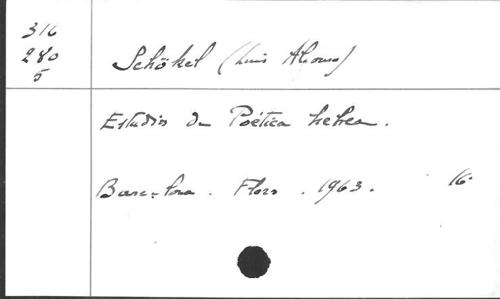 316
280
5
Schökel (Luis Alonso)
Estudios de Poética hebrea.
Barcelona. Flors. 1963. 16º